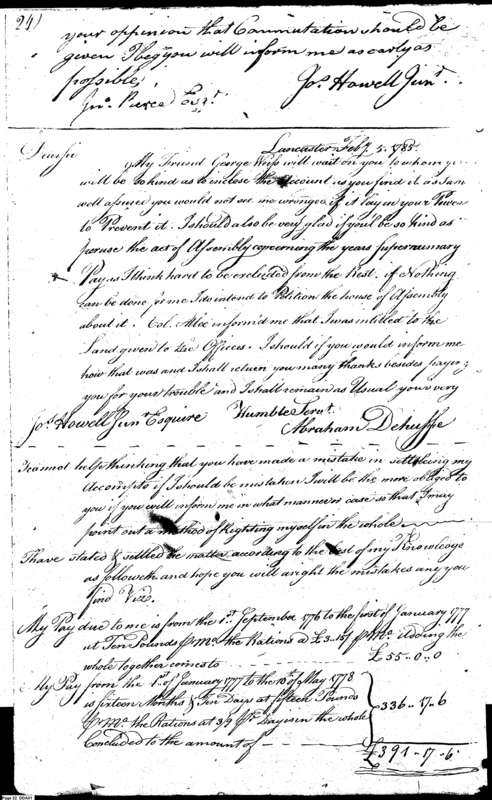 24)
your oppinion that Commutation should be
given I beg you will inform me as early as
possible,
Jos. Howell Junr.
Jno. Pierce Esqr.
Lancaster Feby. 5. 1785
Dear Sir
My Friend George Weiss will wait on you to whom
will be so kind as to inclose the Account as you find it as I am
well assured you would not see me wronged if it lay in your Power
to Prevent it. I should also be very glad if you'l be so kind as
peruse the act of Assembly concerning the years supernumary
Pay, as I think hard to be excluded from the Rest, if Nothing
Can be done for me I do intend to Petition the house of Assembly
about it. Col. Atlee inform'd me that I was intitled to the
Land given to the Officers. I should if you would inform me
how that was and I shall return you many thanks besides paying
you for your trouble and I shall remain as Usual your very
Humble Servt.
Jos. Howell Junr Esquire
Abraham Dehuffe
I cannot help thinking that you have made a mistake in settleing my
Accompts if I should be mistaken I will be the more obliged to
you if you will inform me in what manner or case so that I may
point out a method of Righting myself in the whole
I have stated & settled the matter according to the best of my Knowledge
as followeth and hope you will aright the mistakes any you
find Viz.
My Pay due to me is from the 1st. September 1776 to the first of January 1777
at Ten Pounds pr Mo. the Rations a £ pr Mo. adding the
whole together comes to £55.. 0.. 0
My Pay from the 1st. of January 1777 to the 10th. of May 1778
is sixteen Months & Ten Days at fifteen Pounds
pr Mo. the Rations at 3/9 pr. Day is in the whole 336 - 17 - 6
Concluded to the amount of
£391 - 17 - 6
Page 22 DDA01